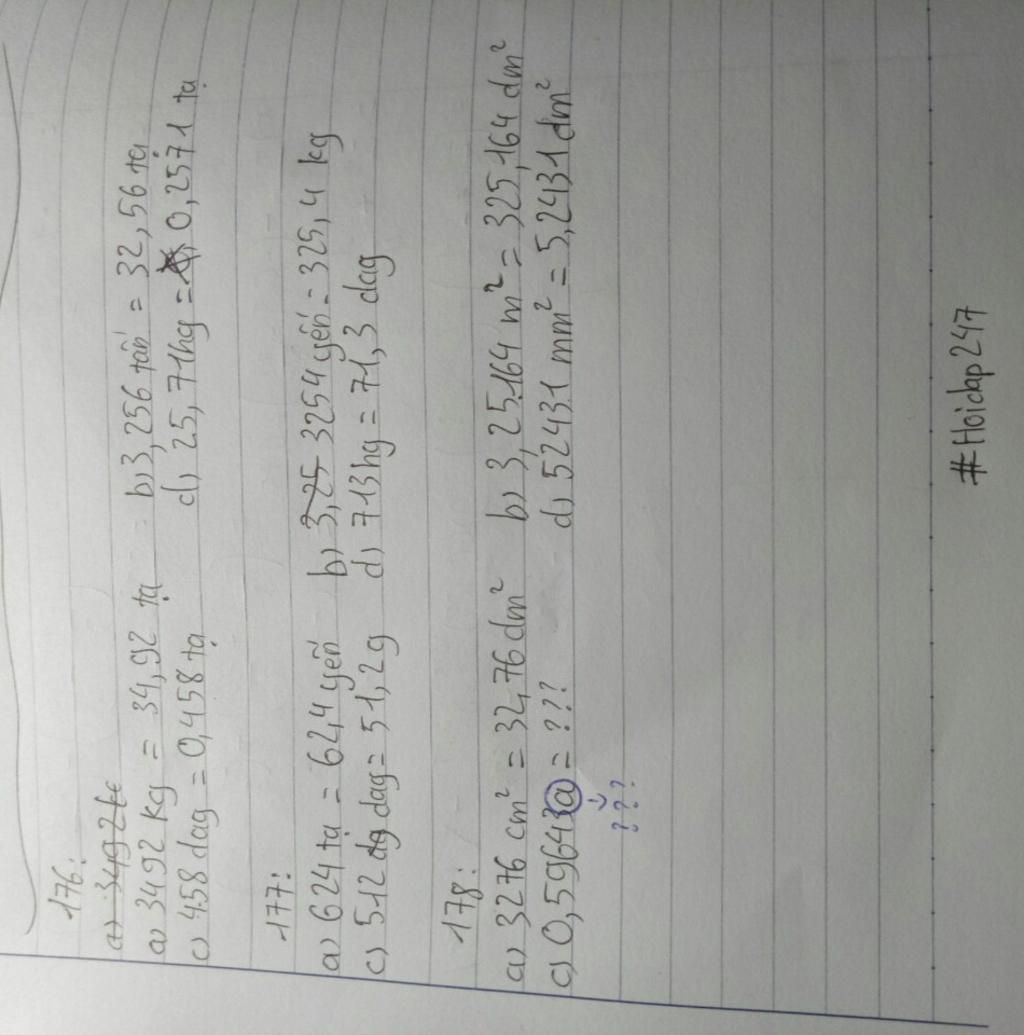 176:
a) 349 2 tc
a) 3492 kg = 34,92 tạ b) 3,256 tấn = 32,56 tạ
c) 458 dag = 0,458 tạ d) 25,71hg = 0,2571 tạ
177:
a) 624 tạ = 62,4 yến b) 3,25 3254 yến = 325,4 kg
c) 512 dg dag = 51,2g d) 713hg = 71,3 dag
178:
a) 3276 cm² = 32,76 dm² b) 3,25164 m² = 325,164 dm²
c) 0,59643a = ??? d) 52431 mm² = 5,2431 dm²
???
#Hoidap247